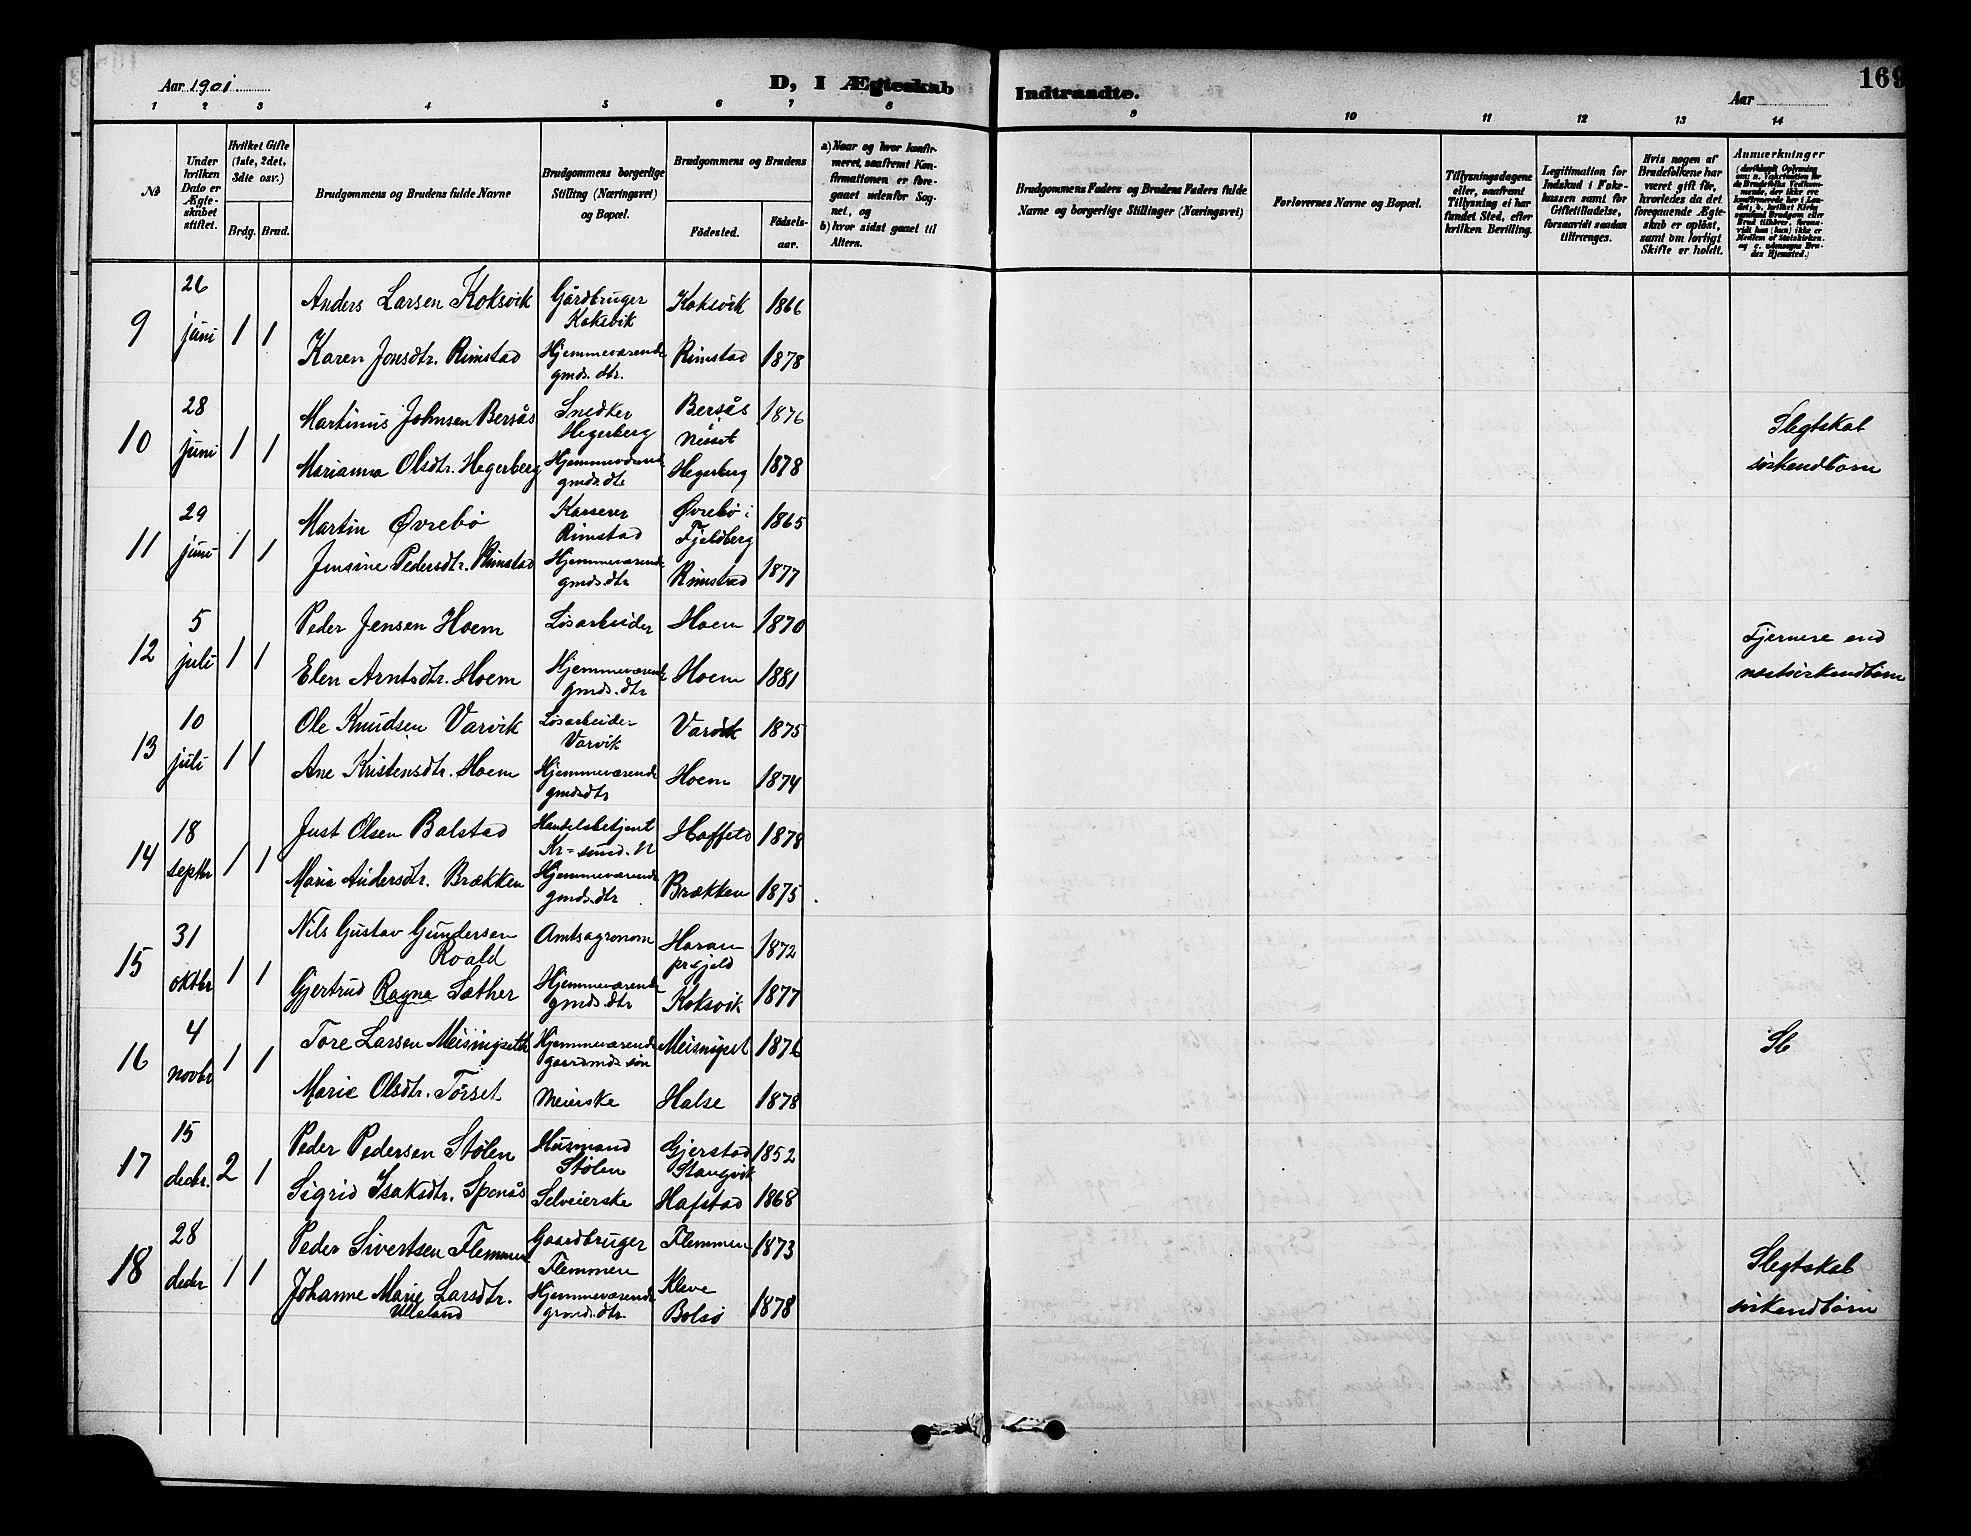 Aar 1901
D, I Ægteskab Indtraadte.
Aar
169
1 2 3 4 5 6 7 8 9 10 11 12 13 14
No
Under hvilken Dato er Ægteskabet stiftet.
Hvilket Gifte (1ste, 2det, 3die osv.)
Brdg. Brud.
Brudgommens og Brudens fulde Navne
Brudgommens borgerlige Stilling (Næringsvei) og Bopæl.
Brudgommens og Brudens
Fødested.
Fødselsaar.
a) Naar og hvor konfirmeret, saafremt Konfirmationen er foregaaet udenfor Sognet, og
b) hvor sidst gaaet til Alters.
Brudgommens Faders og Brudens Faders fulde Navne og borgerlige Stillinger (Næringsvei)
Forlovernes Navne og Bopæl.
Tillysningsdagene eller, saafremt Tillysning ei har fundet Sted, efter hvilken Bevilling.
Legitimation for Indskud i Enkekassen samt for Giftetilladelse, forsaavidt saadan tiltrænges.
Hvis nogen af Brudefolkene har været gift før, hvorledes da det foregaaende Ægteskab er opløst, samt om lovligt Skifte er holdt.
Anmærkninger
9 26 juni 1 1 Anders Larsen Koksvik Gårdbruger Koksvik Koksvik 1866
Karen Jonsdtr. Rimstad Hjemmeværende gmds. dtr. Rimstad 1878
10 28 juni 1 1 Martinus Johnsen Bersås Snedker Hegerberg Bersås Nesset 1876 Slegtskab
Marianna Olsdtr. Hegerberg Hjemmeværende gmds.dtr Hegerberg 1878 søskendbørn
11 29 juni 1 1 Martin Øvrebø Kasserer Rimstad Øvrebø i Fjeldberg 1865
Jensine Pedersdtr. Rimstad Hjemmeværende gmds.dtr Rimstad 1877
12 5 juli 1 1 Peder Jensen Hoem Løsarbeider Hoem 1870 Fjernere end
Elen Arntsdtr. Hoem Hjemmeværende gmds.dtr Hoem 1881 næstsøskendbørn
13 10 juli 1 1 Ole Knudsen Varvik Løsarbeider Varvik Varvik 1875
Ane Kristensdtr. Hoem Hjemmeværende gmds.dtr Hoem 1874
14 18 septbr 1 1 Just Olsen Balstad Handelsbetjent Kr-sund. N Hoffeld 1878
Marie Andersdtr. Brækken Hjemmeværende gmds.dtr Brækken 1875
15 31 oktbr 1 1 Nils Gustav Gundersen Roald Amtsagronom Haram prgjeld 1872
Gjertrud Ragna Sæther Hjemmeværende gmds.dtr Koksvik 1877
16 4 novbr 1 1 Tore Larsen Meisingseth Hjemmeværende gaardmds søn Meisingset 1876 Sb
Marie Olsdtr. Tørset Meierske Halse 1878
17 15 decbr. 2 1 Peder Pedersen Stølen Husmand Stølen Gjerstad Stangvik 1852
Sigrid Isaksdtr. Sponås Selveierske Hafstad 1868
18 28 decbr 1 1 Peder Sivertsen Flemmen Gaardbruger Flemmen Flemmen 1873 Slegtskab
Johanne Marie Larsdtr. Ulleland Hjemmeværende gmds.dtr Kleve Bolsø 1878 søskendbørn